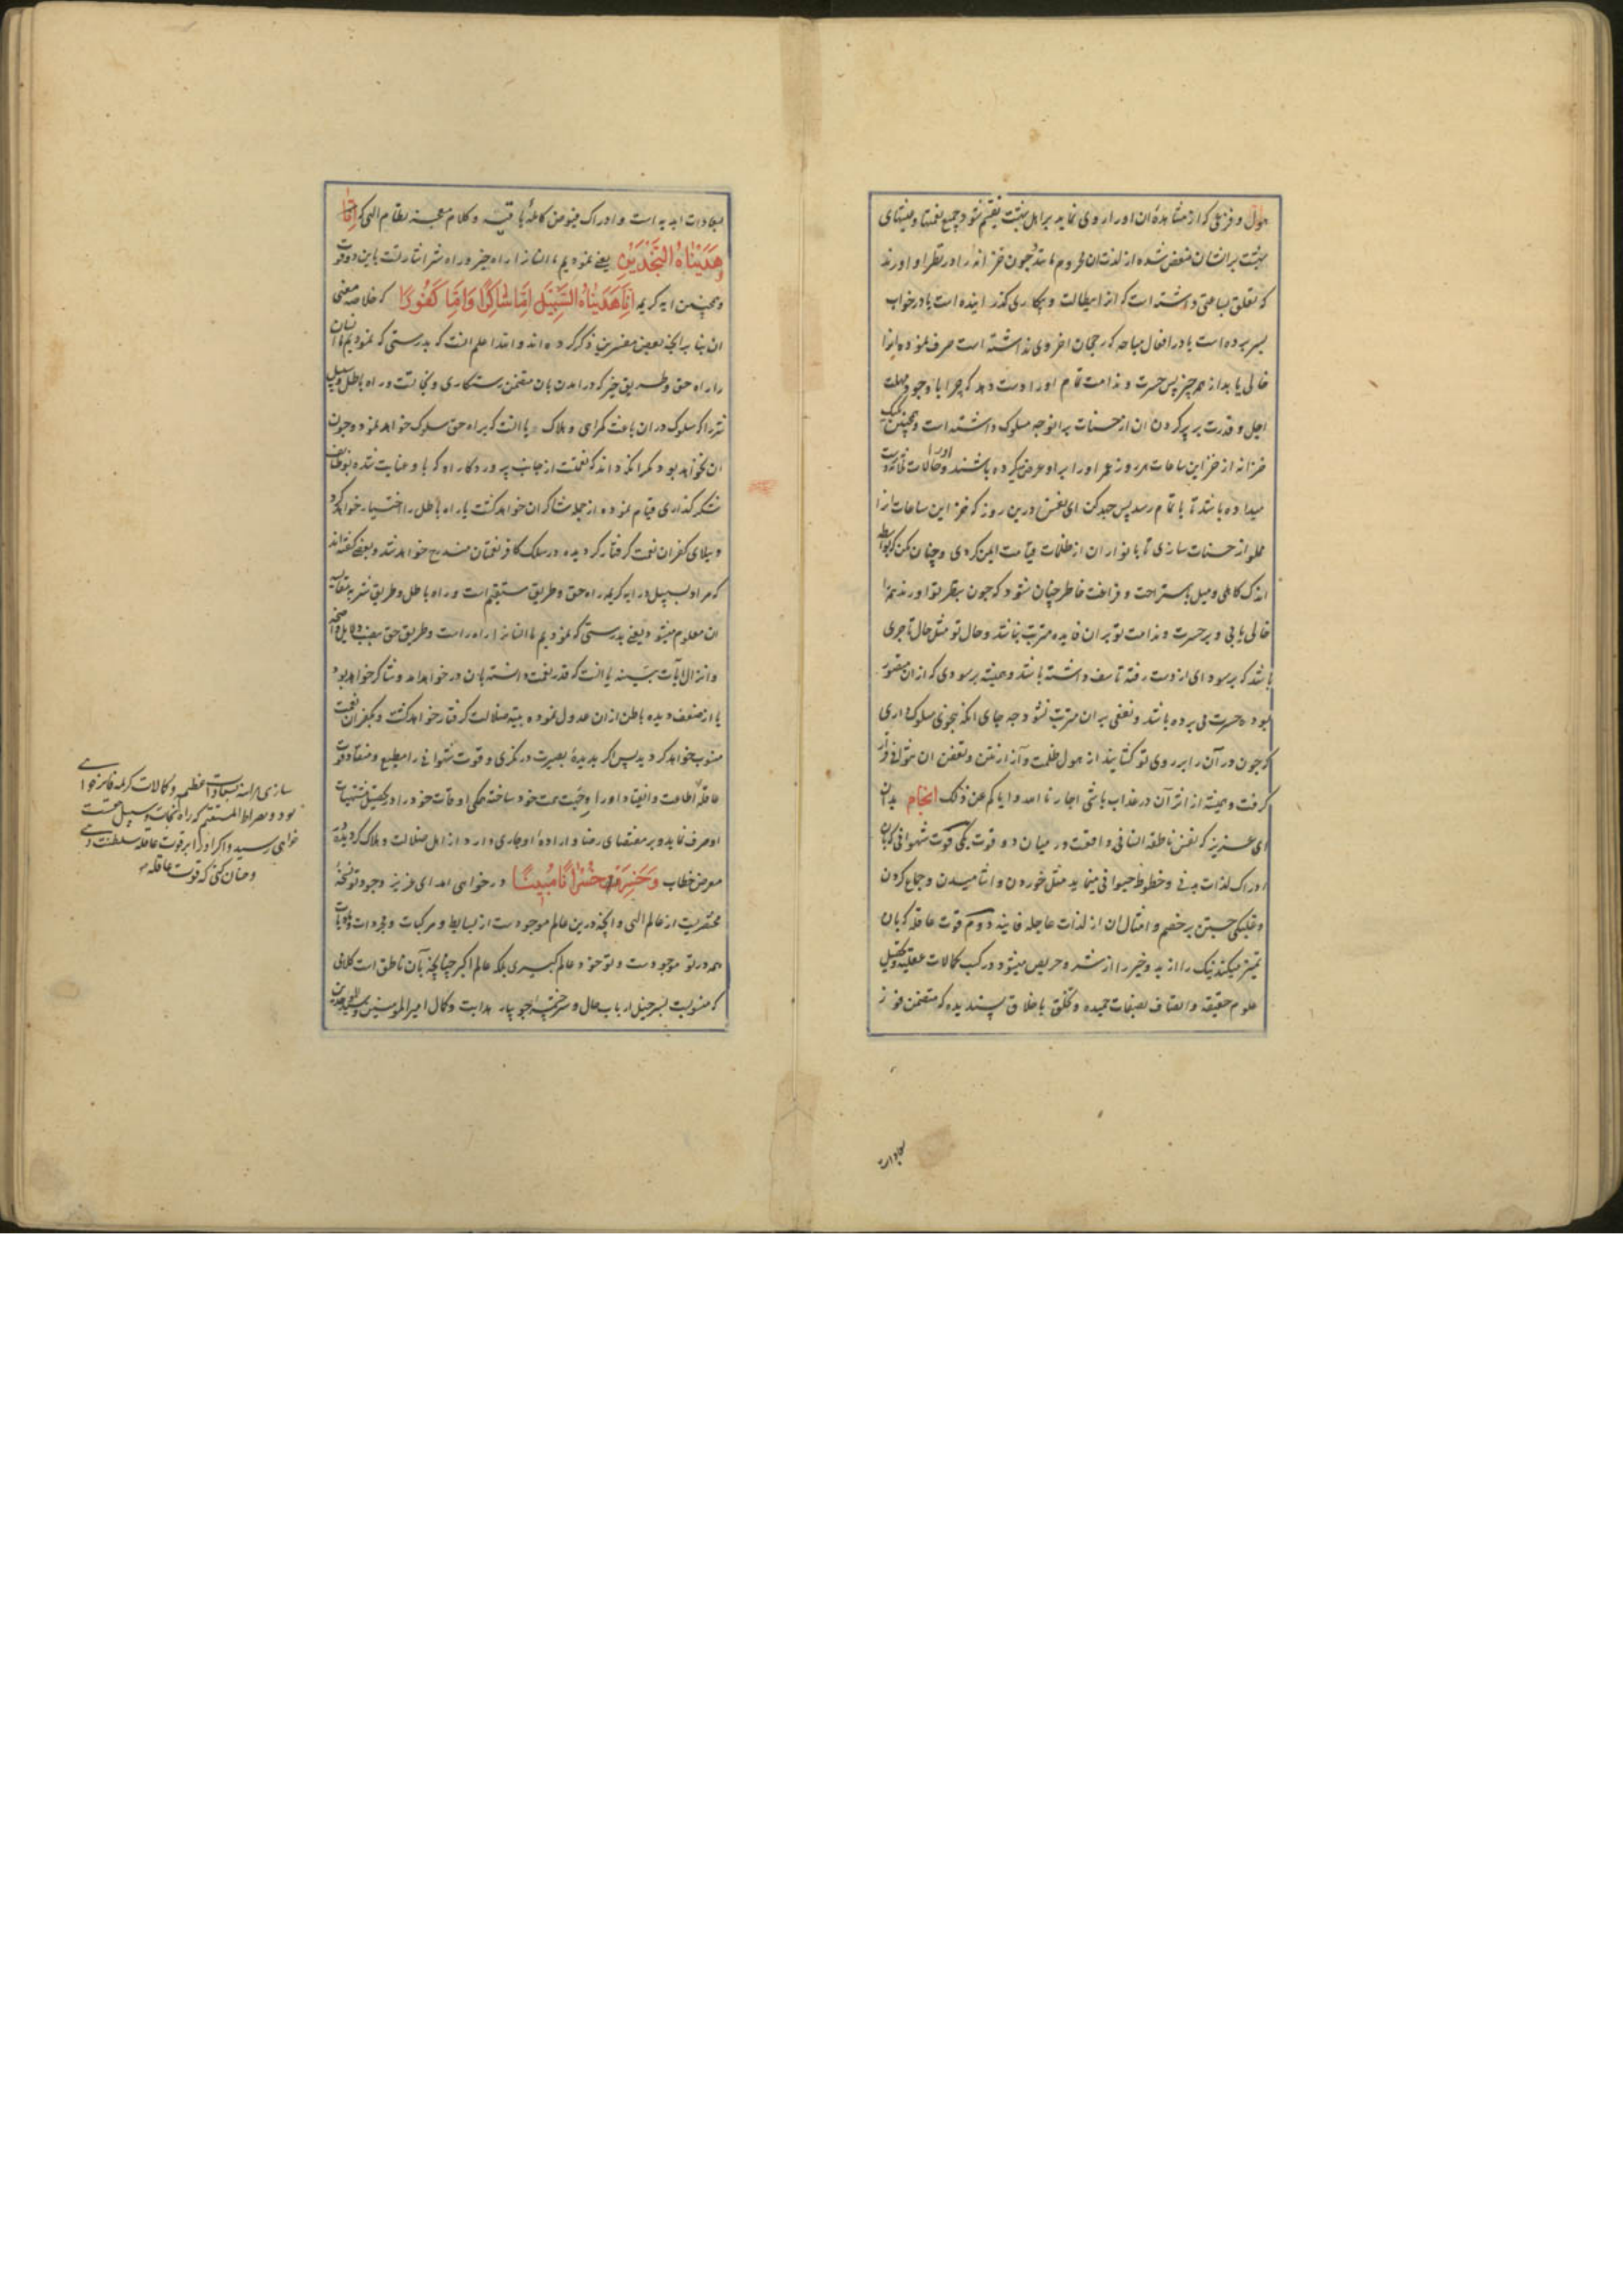 هول و فزعی که از مشاهدهٔ ان او را روی نماید بر اهل جنت تقسیم شود جمیع نعمتها و
جنت برایشان منغص شده از لذت ان محروم مانند چون خزانه را در نظر او اورند
که تعلق بساعتی داشته است که انرا ببطالت و بیکاری کذرانیده است یا در خواب
بسر برده است یا در افعال مباحه که رجحان اخروی نداشته است صرف نموده و انرا
خالی یابد از همه چیز پس حسرت و ندامت تمام او را دست دهد که چرا با وجود مهلت
اجل و قدرت بر پر کردن ان از حسنات بر انوجه مسلوک داشته است و همچنین
خزانه از خزاین ساعات هر روز عمر او را بر او عرض میکرده باشند و حالات
میداده باشد تا باتمام رسد پس جهد کن ای نفس درین روز که خزاین ساعات را
مملو از حسنات سازی تا بانوار ان از ظلمات قیامت ایمن کردی و چنان مکن که بواسطه
اندک کاهلی و میل باستراحت و فراغت خاطر چنان شود که چون بنظر تو اورند همه را
خالی یابی و بر حسرت و ندامت تو بر ان فایده مترتب نباشد و حال تو مثل حال تاجری
باشد که بر سودای از دست رفته تاسف داشته باشد و همیشه بر سودی که از ان متصور
بوده حسرت می برده باشد و نفعی بر ان مترتب نشود چه جای انکه بنحوی سلوک داری
که چون در آن را بر روی تو کشایند از هول ظلمت و آزار نتن و تعفن ان
کرفت و همیشه از اثر آن در عذاب باشی اجارنا الله و ایاکم عن ذلک انجام بدان
ای عزیز که نفس ناطقه انسانی واقعست در میان دو قوت یکی قوت شهوانی که بان
ادراک لذات بدنی و حظوظ حیوانی مینماید مثل خوردن و اشامیدن و جماع کردن
و غلبکی جستن بر خصم و امثال ان از لذات عاجله فانیه دوم قوت عاقله که بان
تمیز میکند نیک را از بد و خیر را از شر و حریص میشود در کسب کمالات عقلیه و تحصیل
علوم حقیقیه و اتصاف بصفات حمیده و تخلق باخلاق پسندیده که متضمن فوز
بسعادات
سعادات ابدیه است و ادراک فیوض کاملهٔ باقیه و کلام معجز نظام الهی که انّا
وهَدَیْناهُ النَّجْدَیْنِ یعنی نمودیم ما انسانرا راه خیر و راه شر اشارتست باین دو قوت
و همچنین ایه کریمه اِنّا هَدَیْناهُ السَّبیلَ اِمّا شاکِرًا وَاِمّا کَفُورًا که خلاصه معنی
ان بنا بر انچه بعض مفسرین ذکر کرده اند و الله اعلم انست که بدرستی که نمودیم ما انسان
را راه حق و طریق خیر که در امدن بان متضمن رستکاری و نجاتست و راه باطل و سبیل
شر را که سلوک در ان باعث کمراهی و هلاک یا انست که براه حق سلوک خواهد نمود و چون
ان نخواهد بود مکر انکه داند که نعمتست از جانب پروردکار او که باو عنایت شده بوظایف
شکر کذاری قیام نموده از جمله شاکران خواهد کشت یا راه باطل را اختیار خواهد کرد
و ببلای کفران نعمت کرفتار کردیده در سلک کافر نعمتان مندرج خواهد شد و بعضی کفته اند
که مراد بسبیل در ایه کریمه راه حق و طریق مستقیم است و راه باطل و طریق شر بمقایسه
ان معلوم میشود یعنی بدرستی که نمودیم ما انسانرا راه راست و طریق حق بنصب دلایل واضحه
و انزال آیات بینه یا انست که قدر نعمت دانسته بان در خواهد امد و شاکر خواهد بود
یا از ضعف دیده باطن از ان عدول نموده بتیه ضلالت کرفتار خواهد کشت و بکفران نعمت
منسوب خواهد کردید پس اکر بدیدهٔ بصیرت در نکری و قوت شهوانی را مطیع و منقاد قوت
عاقله
اطاعت و انقیاد او را وجهت همت خود ساخته همکی اوقات خود را در تحصیل مشتهیات
او صرف نماید و بر مقتضای رضا و ارادهٔ او جاری دارد از اهل ضلالت و هلاک کردیده
معرض خطاب وَخَسِرَتْ خُسْرانًا مُبینًا در خواهی امد ای عزیز وجود تو نسخهٔ
مختصریست از عالم الهی و انچه درین عالم موجودست از بسایط و مرکبات و مجردات و مادیات
همه در تو موجودست و تو خود عالم کبیری بلکه عالم اکبر چنانچه بآن ناطق است کلامی
که منسوبست بسرخیل ارباب حال و سرچشمهٔ جویبار هدایت و کمال امیرالمومنین
سازی هراینه بسعادات عظیمه و کمالات کریمه فایز خواهی
بود و بصراط المستقیم که راه نجات و سبیل جنتست
خواهی رسید و اکر او را بر قوت عاقله سلطنت دهی
و چنان کنی که قوت عاقله